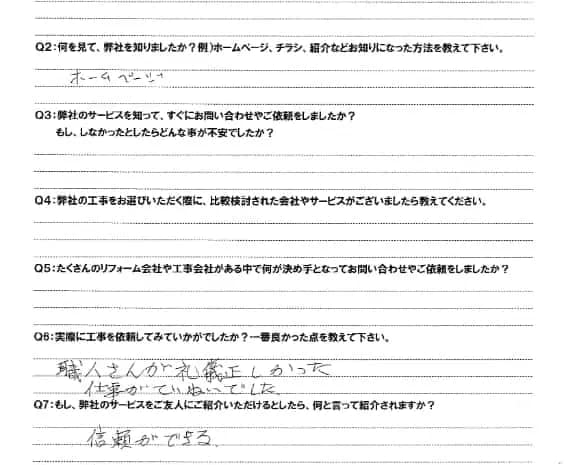 Q2:何を見て、弊社を知りましたか？例)ホームページ、チラシ、紹介などお知りになった方法を教えて下さい。
ホームページ
Q3:弊社のサービスを知って、すぐにお問い合わせやご依頼をしましたか？
もし、しなかったとしたらどんな事が不安でしたか？
Q4:弊社の工事をお選びいただく際に、比較検討された会社やサービスがございましたら教えてください。
Q5:たくさんのリフォーム会社や工事会社がある中で何が決め手となってお問い合わせやご依頼をしましたか？
Q6:実際に工事を依頼してみていかがでしたか？一番良かった点を教えて下さい。
職人さんが礼儀正しかった
仕事がていねいでした。
Q7:もし、弊社のサービスをご友人にご紹介いただけるとしたら、何と言って紹介されますか？
信頼ができる。